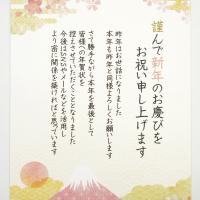 謹んで新年のお慶びを
お祝い申し上げます
昨年はお世話になりました
本年も昨年と同様よろしくお願いします
さて勝手ながら本年を最後として
皆様への年賀状を
控えさせていただくこととなりました
今後はSNSやメールなどを活用し
より密に関係を築ければと思っています